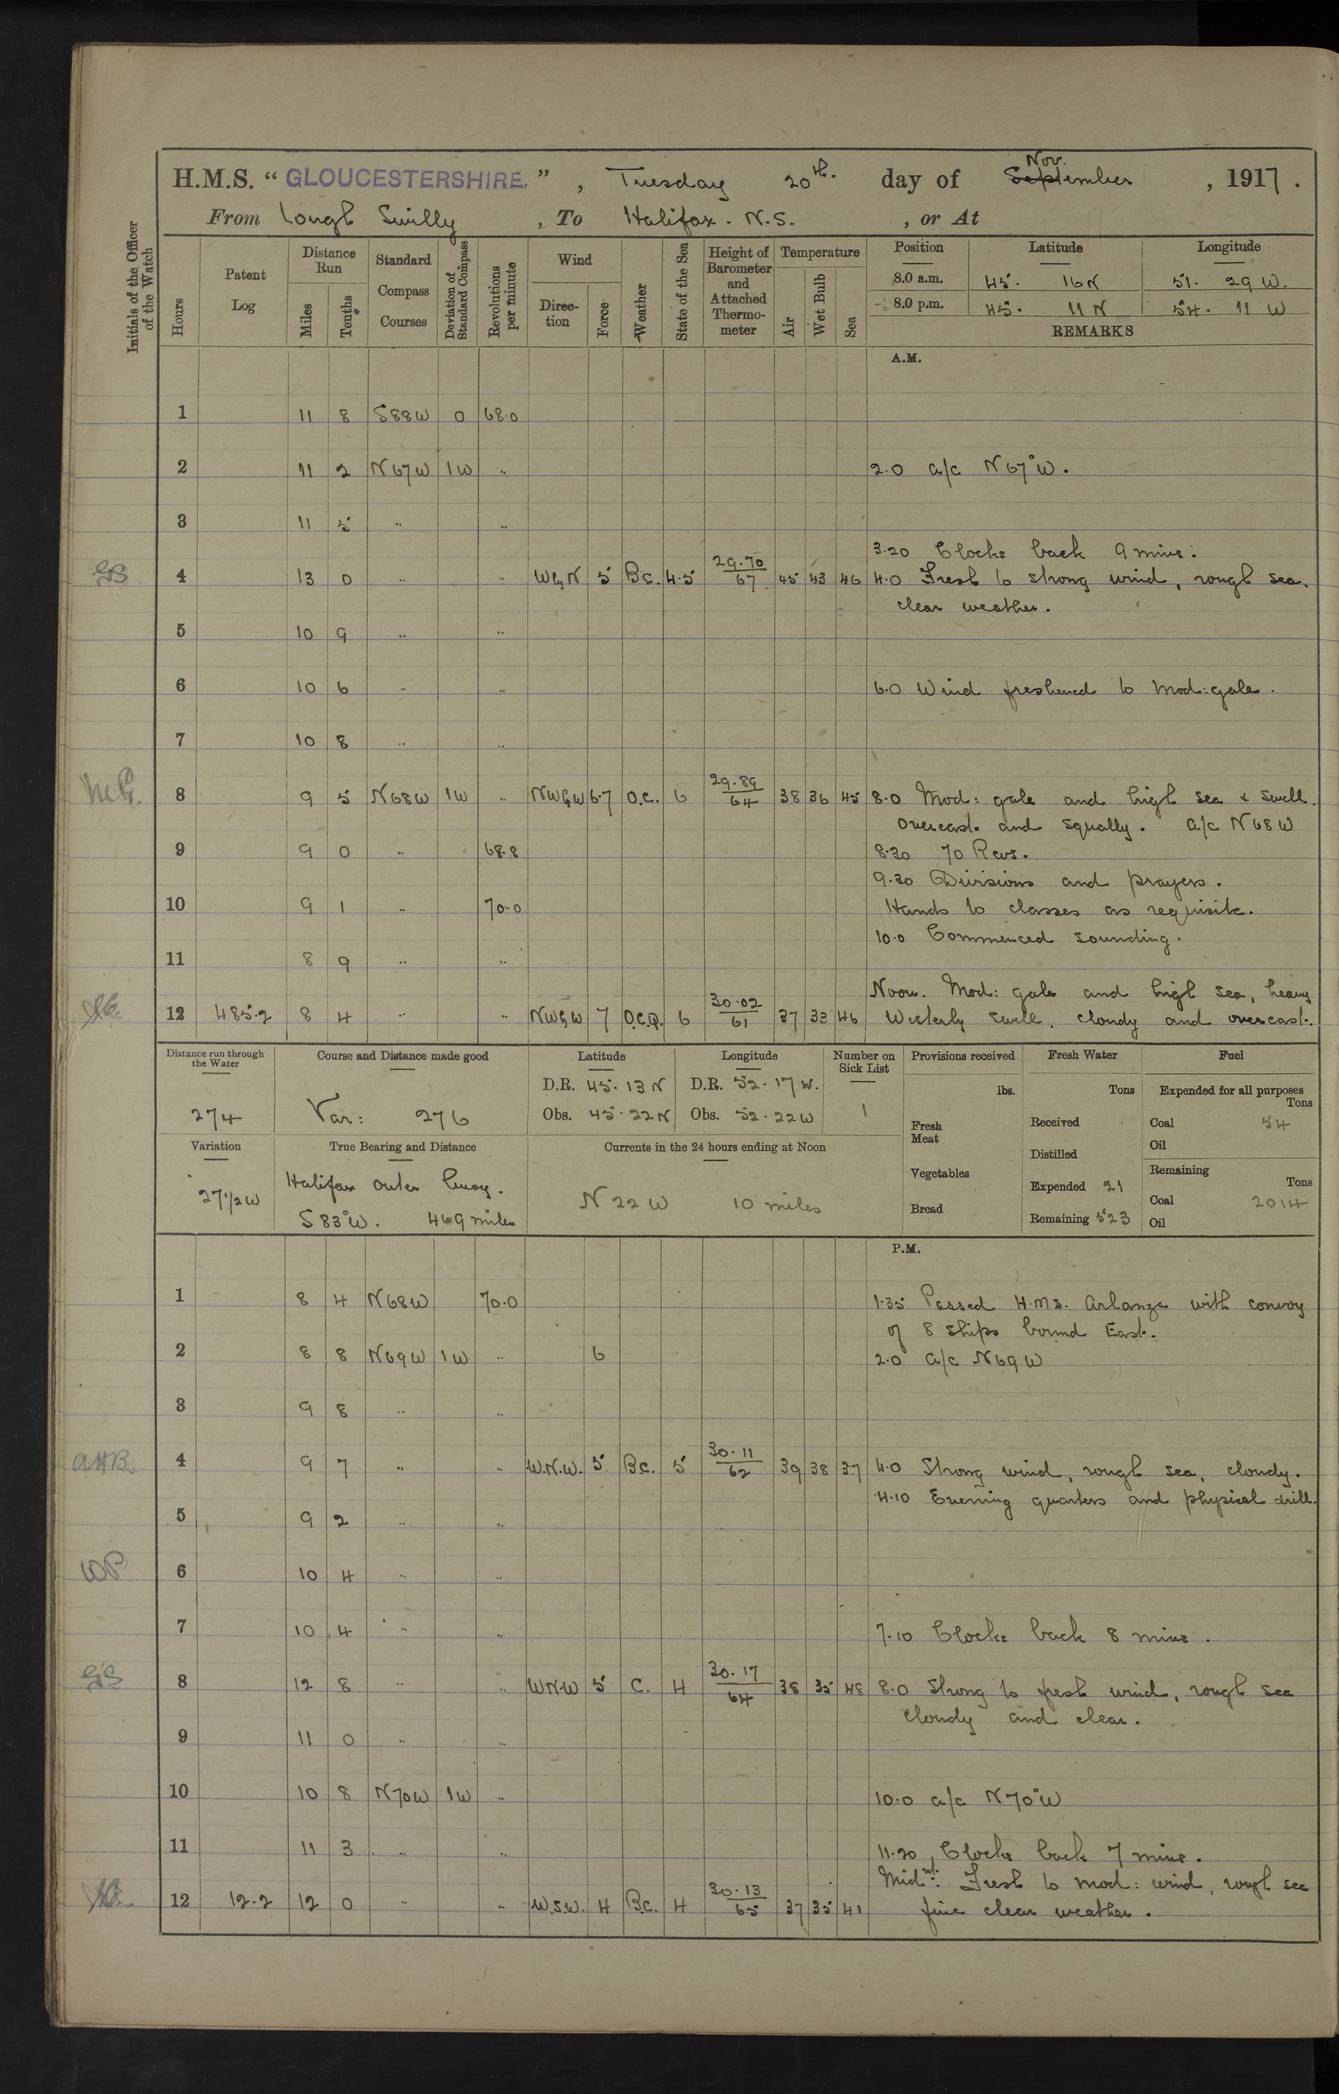 H.M.S. “ GLOUCESTERSHIRE, ” , Tuesday 20th. day of September Nov. , 1917 .
From Lough Swilly , To Halifax. N.S. , or At
Initials of the Officer of the Watch
Hours Patent Log Distance Run Miles Tenths Standard Compass Courses Deviation of Standard Compass Revolutions per minute Wind Direction Force Weather State of the Sea Height of Barometer and Attached Thermometer Temperature Air Wet Bulb Sea Position Latitude Longitude
8.0 a.m. 45. 16 N 51. 29 W.
8.0 p.m. 45. 11 N 54. 11 W
REMARKS
A.M.
1 11 8 S88W 0 68.0
2 11 2 N67W 1W .. 2.0 a/c N67°W.
3 11 5 .. ..
3.20 Clocks back 9 mins:
4 13 0 .. .. WbyN 5 B.C. 4.5 29.70 67 45 43 46 4.0 Fresh to strong wind, rough sea.
clear weather.
5 10 9 .. ..
6 10 6 .. .. 6.0 Wind freshened to mod: gale.
7 10 8 .. ..
8 9 5 N68W 1W .. NWbyW 6.7 O.C. 6 29.89 64 38 36 45 8.0 Mod: gale and high sea & swell.
overcast and squally. a/c N68W
9 9 0 .. 68.8 8.30 70 Revs.
9.30 Divisions and prayers.
10 9 1 .. 70.0 Hands to classes as requisite.
10.0 Commenced sounding.
11 8 9 .. ..
Noon. Mod: gale and high sea, heavy
12 485.2 8 4 .. .. NWbyW 7 O.C.Q. 6 30.02 61 37 33 46 Westerly swell, cloudy and overcast.
Distance run through the Water Course and Distance made good Latitude Longitude Number on Sick List Provisions received Fresh Water Fuel
274 Var: 276 D.R. 45.13 N D.R. 52.17 W. 1 lbs. Tons Expended for all purposes Tons
Obs. 45.22 N Obs. 52.22 W Fresh Meat Received Coal 54
Oil
Variation True Bearing and Distance Currents in the 24 hours ending at Noon Distilled
Vegetables Remaining Tons
27 1/2 W Halifax outer buoy. N 22 W 10 miles Expended 21 Coal 2014
S 83°W. 469 miles Bread Remaining 523 Oil
P.M.
1 8 4 N68W 70.0 1.35 Passed H.M.S. Arlanza with convoy
of 8 ships bound East.
2 8 8 N69W 1W .. 6 2.0 a/c N69W
3 9 8 .. ..
AHB. 4 9 7 .. .. W.N.W. 5 B.C. 5 30.11 62 39 38 37 4.0 Strong wind, rough sea, cloudy.
4.10 Evening quarters and physical drill.
5 9 2 .. ..
WP 6 10 4 .. ..
7 10 4 .. .. 7.10 Clocks back 8 mins.
8 12 8 .. .. WNW 5 C. 4 30.17 64 38 35 48 8.0 Strong to fresh wind, rough sea
cloudy and clear.
9 11 0 .. ..
10 10 8 N70W 1W .. 10.0 a/c N70°W
11 11 3 .. .. 11.20 Clocks back 7 mins.
Midnt: Fresh to mod: wind, rough sea
12 12.2 12 0 .. .. W.S.W. 4 B.C. 4 30.13 65 37 35 41 fine clear weather.